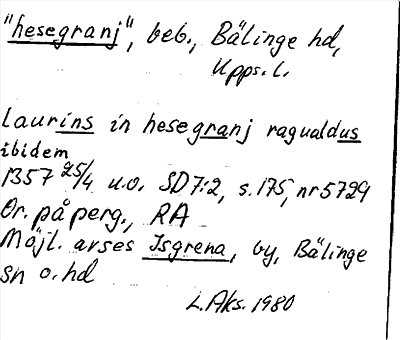 "hesegranj", beb., Bälinge hd,
Upps. l.
laurins in hesegranj ragualdus
ibidem
1357 25/4 u.o. SD7:2, s. 175, nr 5729
Or. på perg., RA
Möjl. avses Isgrena, by, Bälinge
sn o. hd
L. Aks. 1980